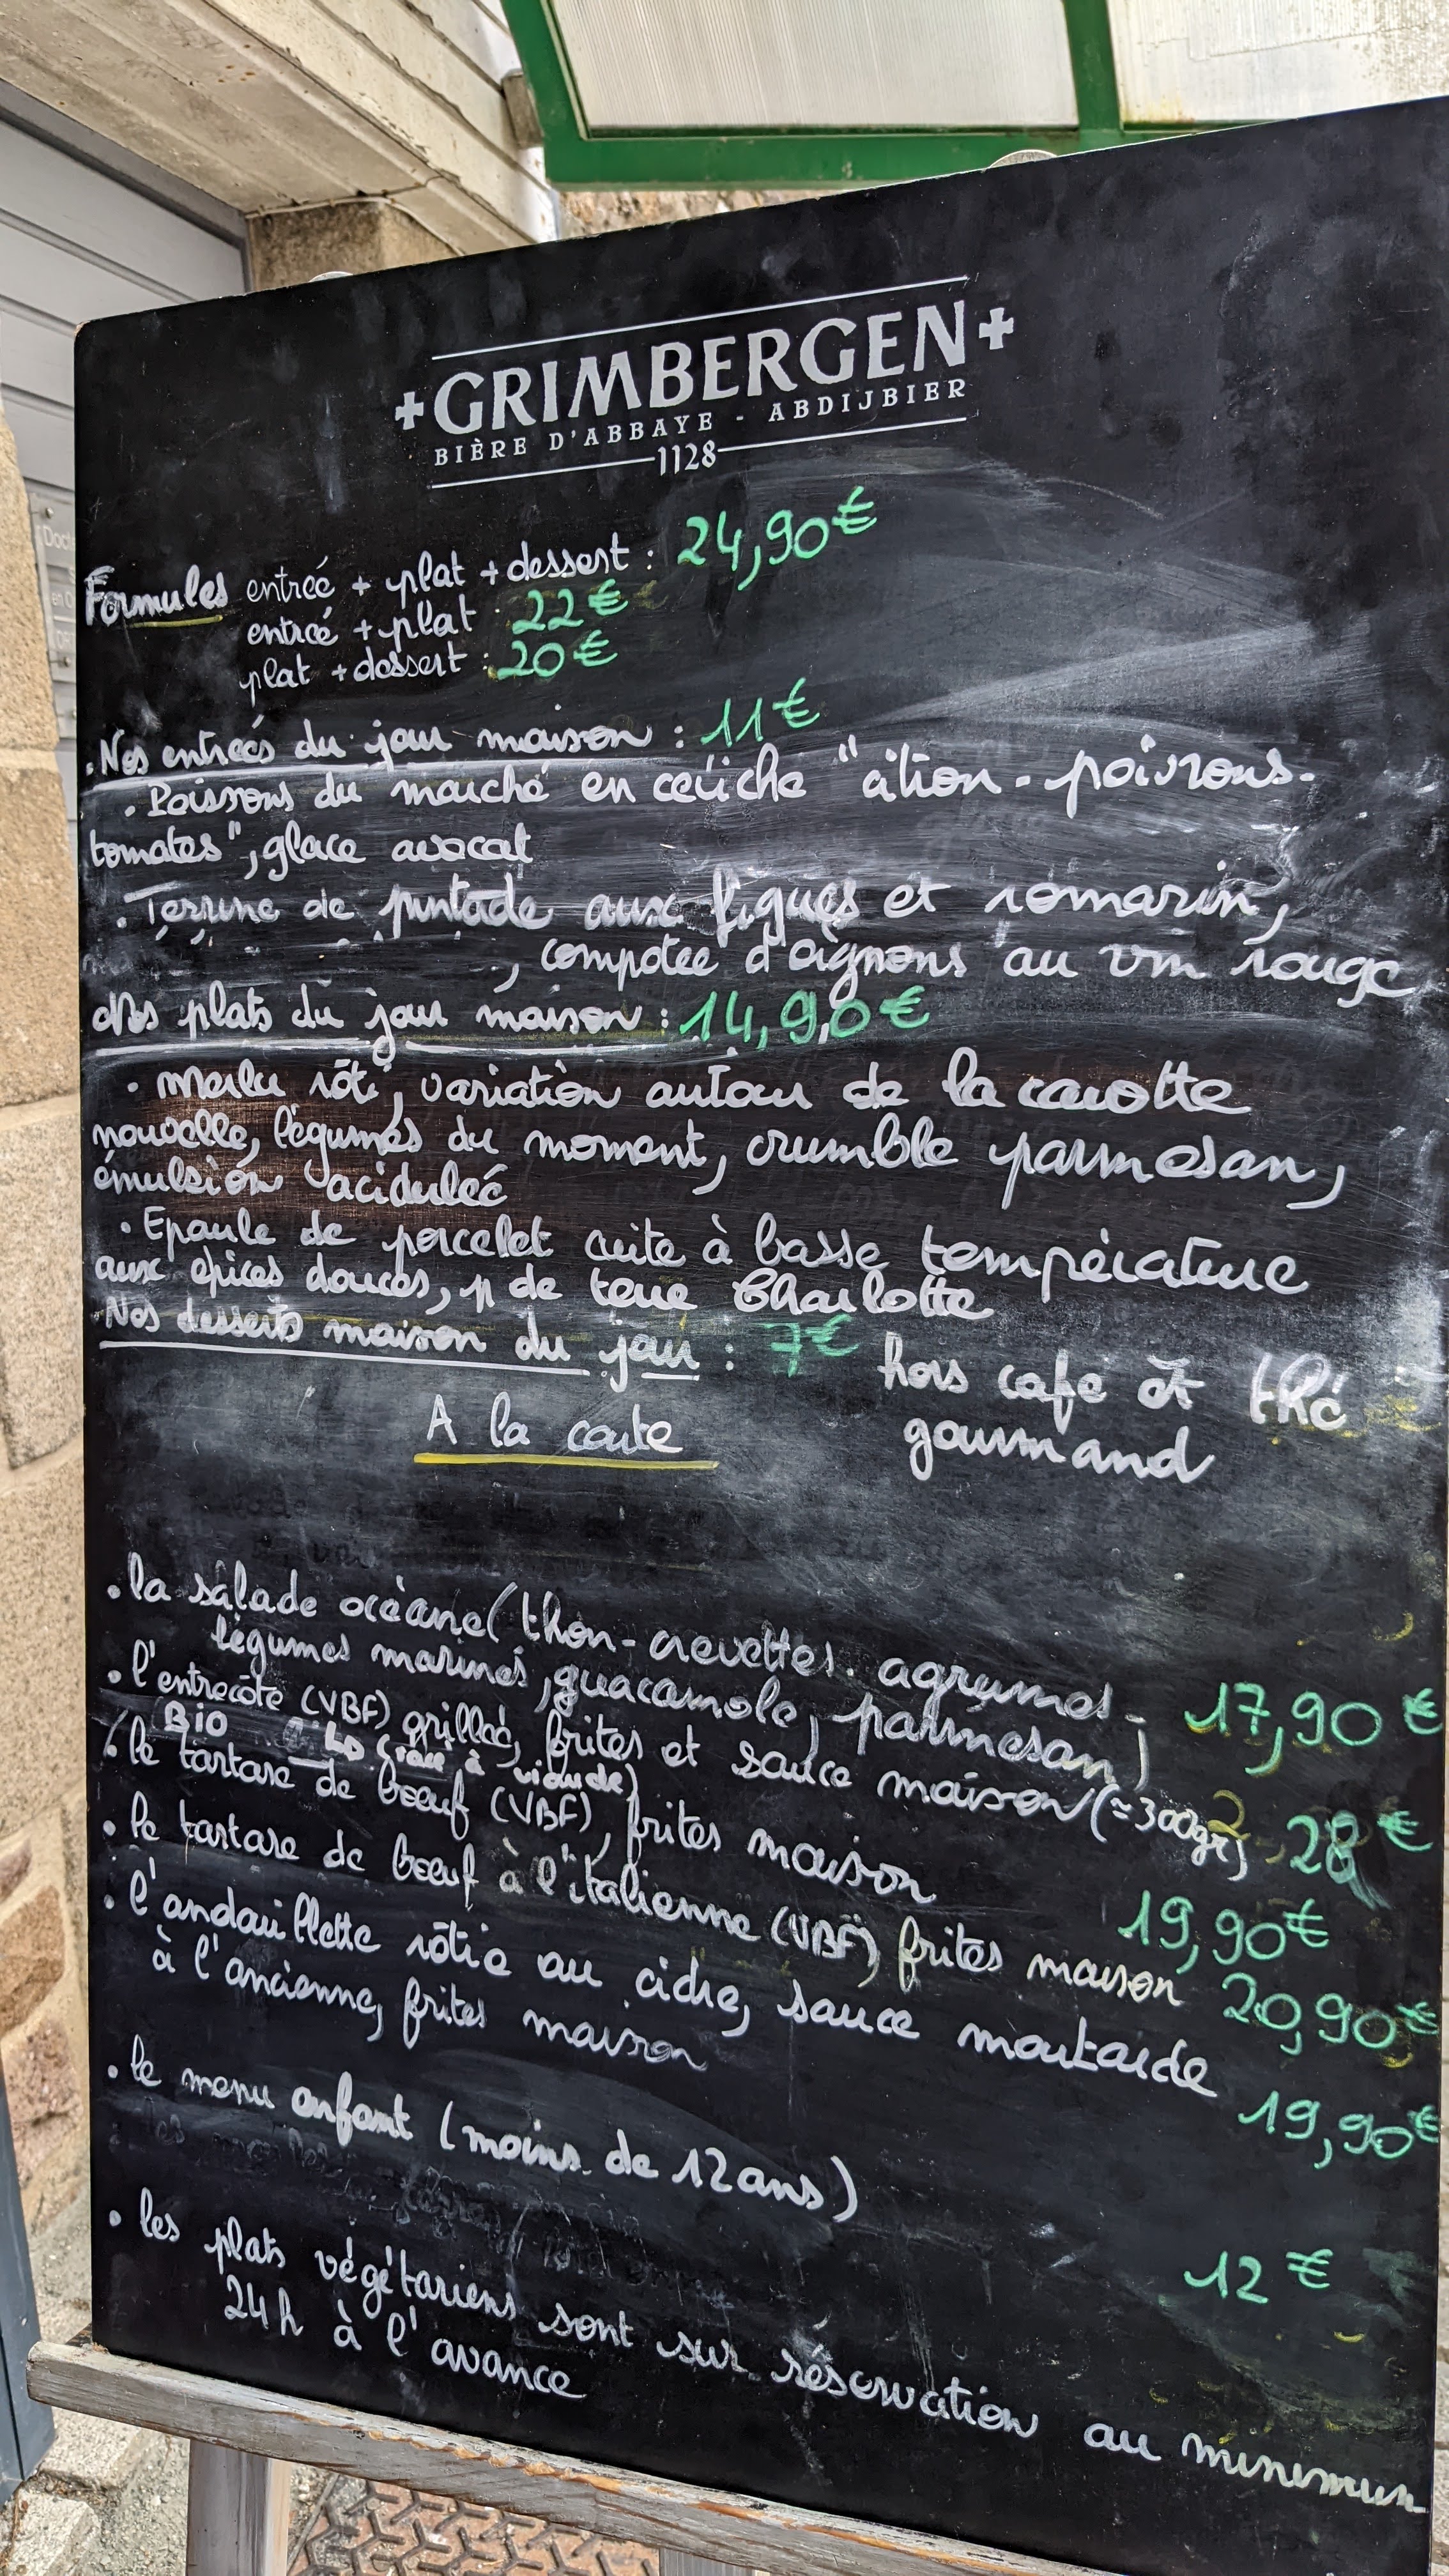 +GRIMBERGEN+
BIÈRE D'ABBAYE - ABDIJBIER
1128
Formules entrée + plat + dessert : 24,90€
entrée + plat : 22€
plat + dessert : 20€
. Nos entrées du jour maison : 11€
. Poissons du marché en céviche "citron - poivrons -
tomates", glace avocat
. Terrine de pintade aux figues et romarin,
, compotée d'oignons au vin rouge
Nos plats du jour maison : 14,90€
. Merlu rôti, variation autour de la carotte
nouvelle, légumes du moment, crumble parmesan,
émulsion acidulée
. Epaule de porcelet cuite à basse température
aux épices douces, p de terre Charlotte
. Nos desserts maison du jour : 7€ hors café et thé
gourmand
A la carte
. la salade océane (thon - crevettes - agrumes -
légumes marinés, guacamole, parmesan) 17,90€
. l'entrecôte (VBF) grillée, frites et sauce maison (≈300gr) 28€
Bio (race à viande)
. le tartare de boeuf (VBF), frites maison 19,90€
. le tartare de boeuf à l'italienne (VBF) frites maison 20,90€
. l'andouillette rôtie au cidre, sauce moutarde
à l'ancienne, frites maison 19,90€
. le menu enfant (moins de 12 ans) 12€
. les plats végétariens sont sur réservation au minimum
24h à l'avance